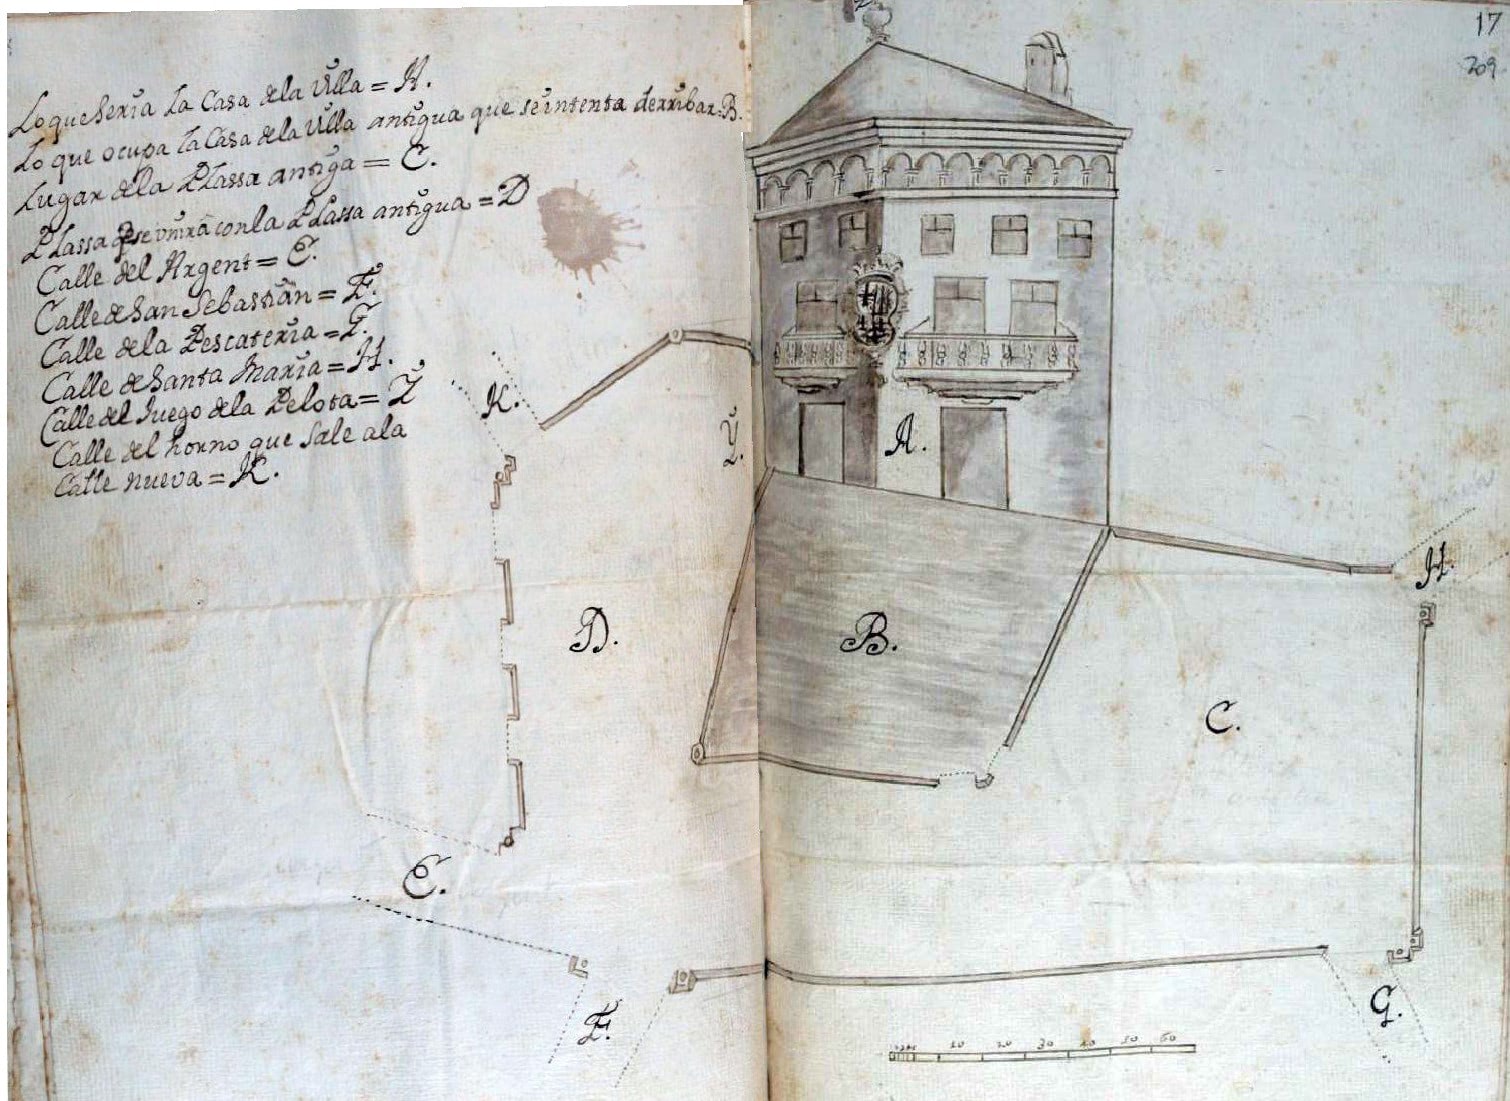 Lo que Seria La Casa de la Villa = A.
Lo que ocupa La Casa de la Villa antigua que se intenta derribar = B.
Lugar de la PLassa antiga = C.
PLassa se unira con la PLassa antigua = D
Calle del Argent = E.
Calle de San Sebastian = F.
Calle de la Pescateria = G.
Calle de Santa Maria = H.
Calle del Juego de la Pelota = Y
Calle del horno que Sale a la
Calle nueva = K.
17
209
K.
Y.
A.
H.
D.
B.
C.
E.
F.
G.
10 20 30 40 50 60